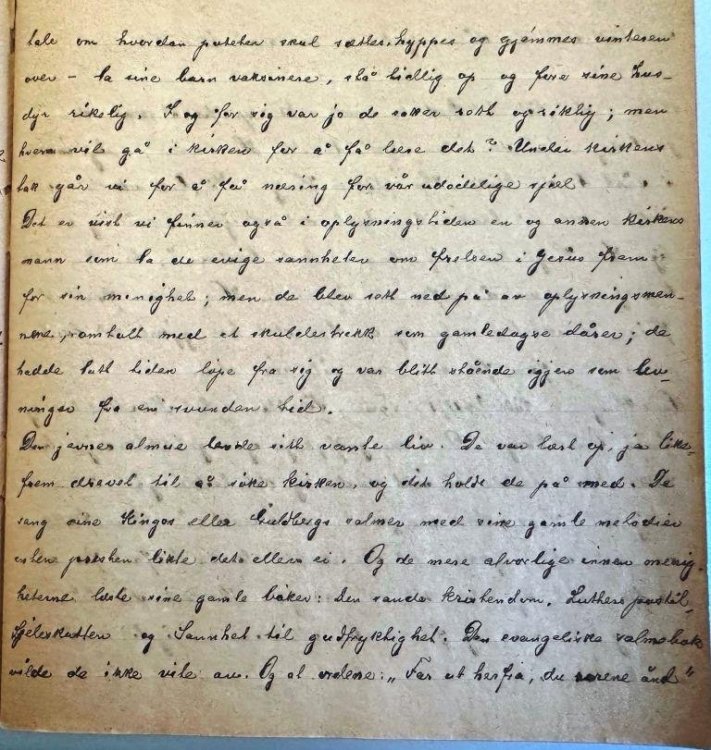 tale om hvordan poteter skul settes, hyppes og gjemmes vinteren
over – la sine barn vaksinere, stå tidlig op og fore sine hus-
dyr rikelig. I og for sig var jo de saker rett og riktig; men
hvem vil gå i kirken for å få lære det? Under kirkens
tak går vi for å få næring for vår udødelige sjel
Det er visst vi finner også i oplysningstiden en og annen kirkens
mann som la de evige sannheter om frelsen i Jesus frem
for sin menighet; men de blev sett ned på av oplysningsmen-
nene, omtalt med et skuldertrekk som gamledagse dårer; de
hadde latt tiden løpe fra sig og var blitt stående igjen som lev-
ninger fra en svunden tid.
Den jevne almue levde sitt vante liv. De var lært op, ja like-
frem drevet til å søke kirken, og det holdt de på med. De
sang sine Kingos eller Guldbergs salmer med sine gamle melodier
enten presten likte det eller ei. Og de mere alvorlige innen menig-
heterne leste sine gamle bøker: Den sande kristendom, Luthers postil,
Sjeleskatten og Sannhet til gudfryktighet. Den evangeliske salmebok
vilde de ikke vite av. Og at ordene: „Far ut herfra, du urene ånd"